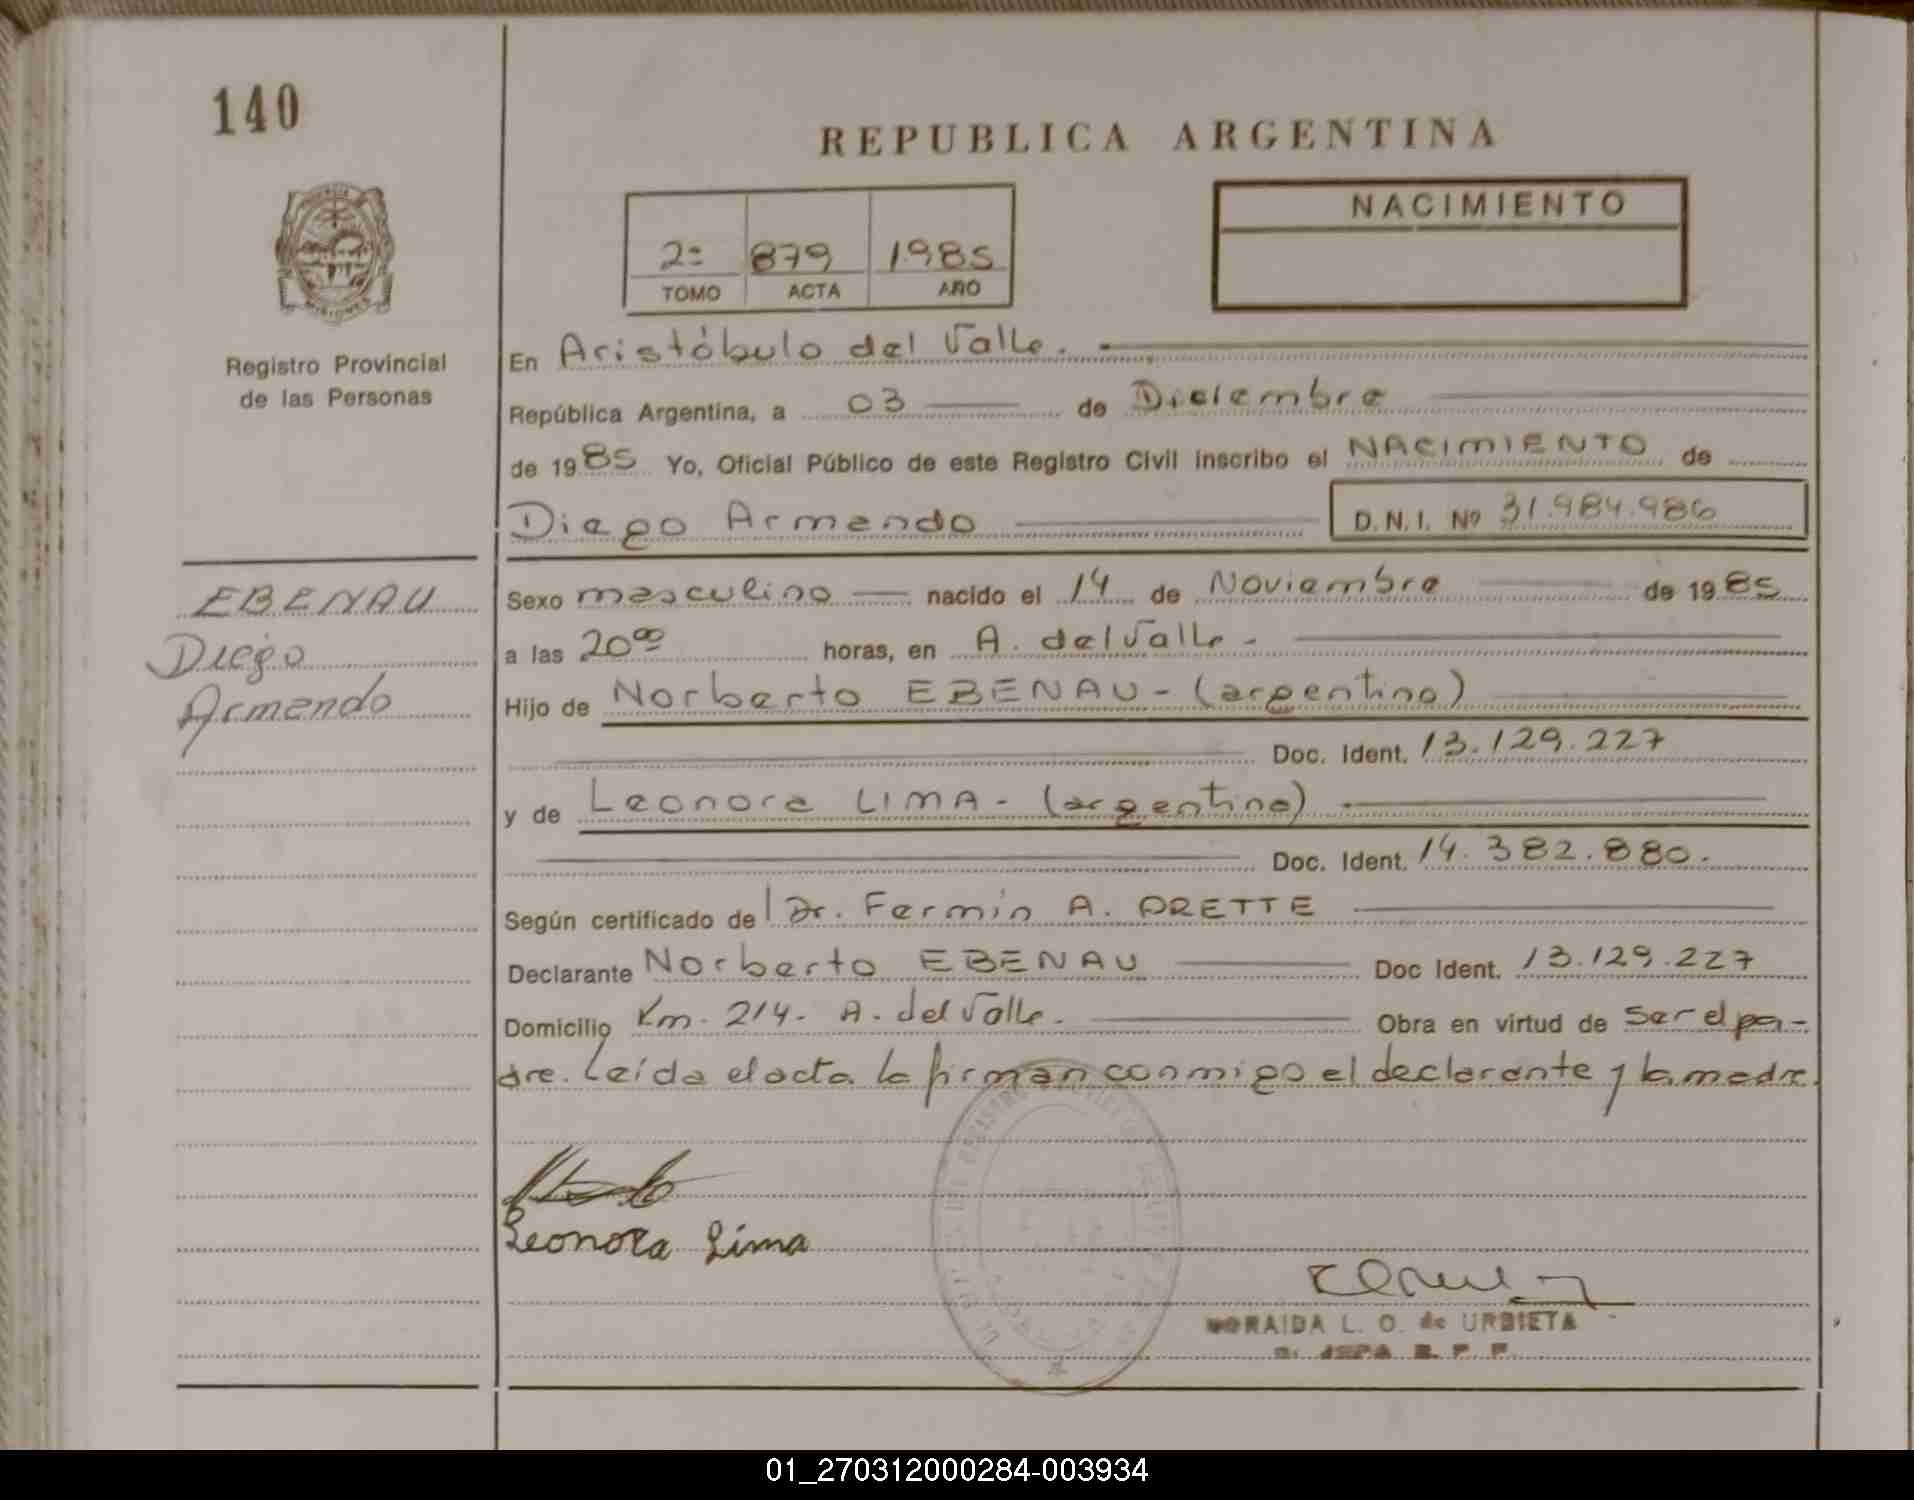 140
REPUBLICA ARGENTINA
NACIMIENTO
2º 879 1985
TOMO ACTA AÑO
MISIONES
Registro Provincial
de las Personas
En Aristóbulo del Valle.
República Argentina, a 03 de Diciembre
de 1985 Yo, Oficial Público de este Registro Civil inscribo el NACIMIENTO de
Diego Armando D.N.I. Nº 31.984.986
EBENAU
Diego
Armando
Sexo masculino nacido el 14 de Noviembre de 1985
a las 20⁰⁰ horas, en A. del Valle -
Hijo de Norberto EBENAU - (argentino)
Doc. Ident. 13.129.227
y de Leonora LIMA - (argentina)
Doc. Ident. 14.382.880.
Según certificado de Dr. Fermín A. ORETTE
Declarante Norberto EBENAU Doc Ident. 13.129.227
Domicilio Km. 214 - A. del Valle. Obra en virtud de ser el pa-
dre. Leída el acta la firman conmigo el declarante y la madre.
Leonora Lima
MORAIDA L. O. de URBIETA
01_270312000284-003934